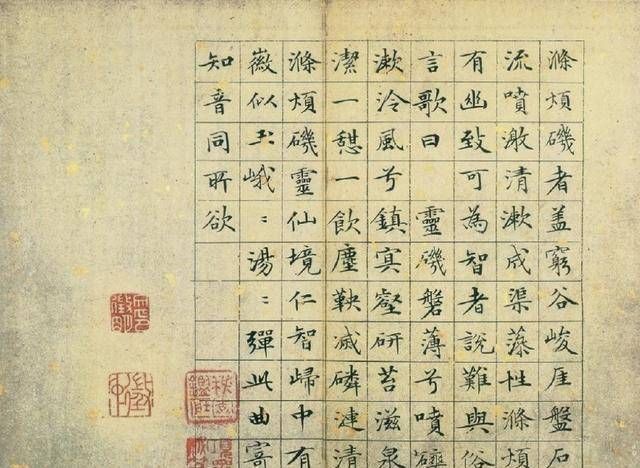 滌煩磯者盖窮谷峻厓盤石
流噴激清漱成渠藻性滌煩
有幽致可為智者說難與俗
言歌曰 靈磯磐薄兮噴
漱泠風兮鎮冥壑研苔滋泉
潔一憩一飲塵鞅滅磷漣清
滌煩磯靈仙境仁智歸中有
徽似玉峨〻湯〻彈此曲寄
知音同所欲